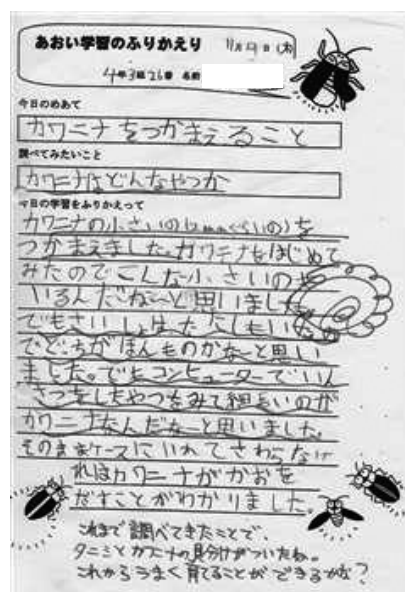 あおい学習のふりかえり 11月9日(木)
4年3組26番 名前
今日のめあて
カワニナをつかまえること
調べてみたいこと
カワニナはどんなやつか
今日の学習をふりかえって
カワニナの小さいの(ぐらいの)を
つかまえました。カワニナをはじめて
みたのでこんな小さいのも
いるんだね〜と思いました
でもさいしょはたにしもいたの
でどっちがほんものかな〜と思い
ました。でもコンピューターでいん
さつをしたやつをみて細長いのが
カワニナなんだな〜と思いました。
そのままケースにいれてさわらなけ
ればカワニナがかおを
だすことがわかりました。
これまで調べてきたことで、
タニシとカワニナの見分けがついたね。
これからうまく育てることができるかな?